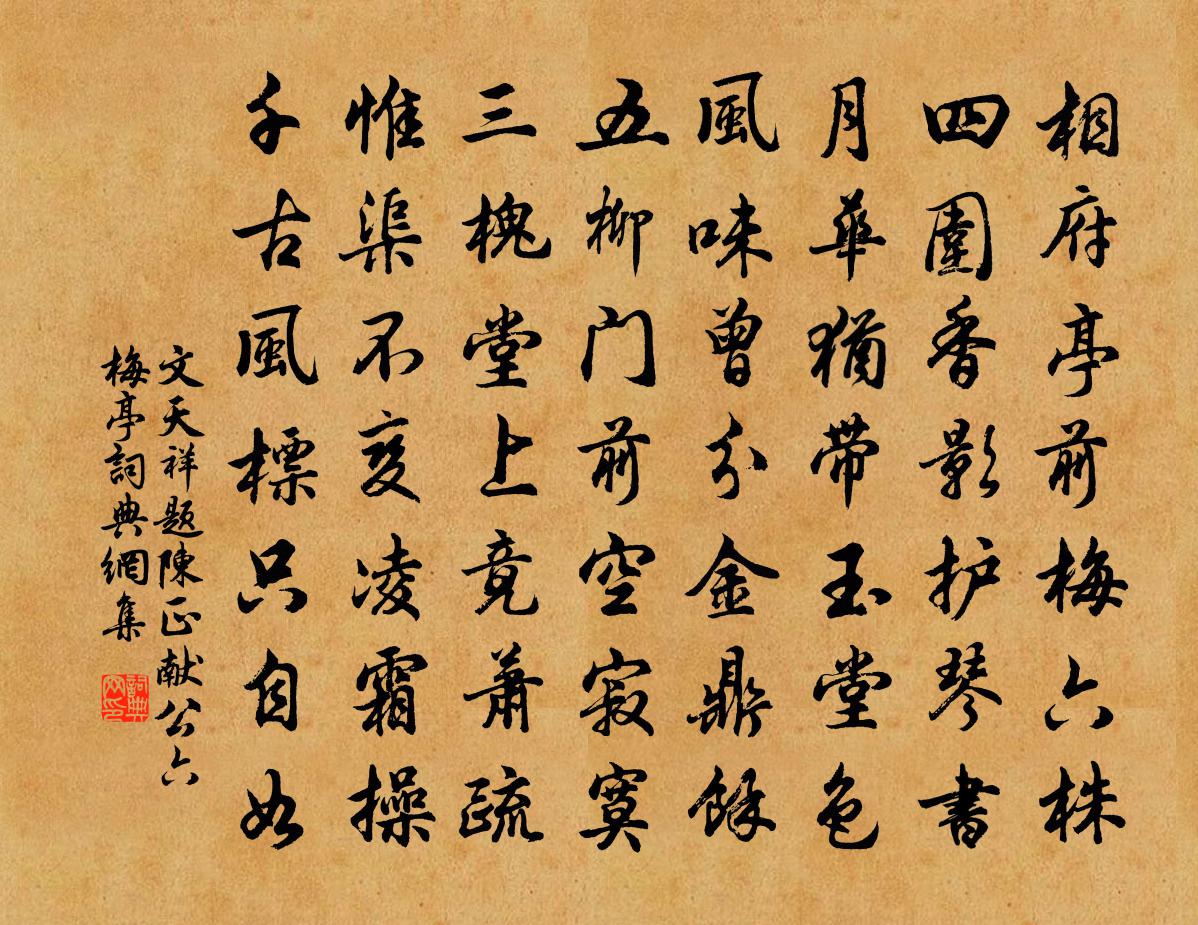 相府亭前梅六株
四圍香影护琴書
月華猶带玉堂色
風味曾分金鼎餘
五柳門前空寂寞
三槐堂上竟蕭疏
惟渠不变凌霜操
千古風標只自如
文天祥题陳正献公六
梅亭詞典網集
詞典
网印